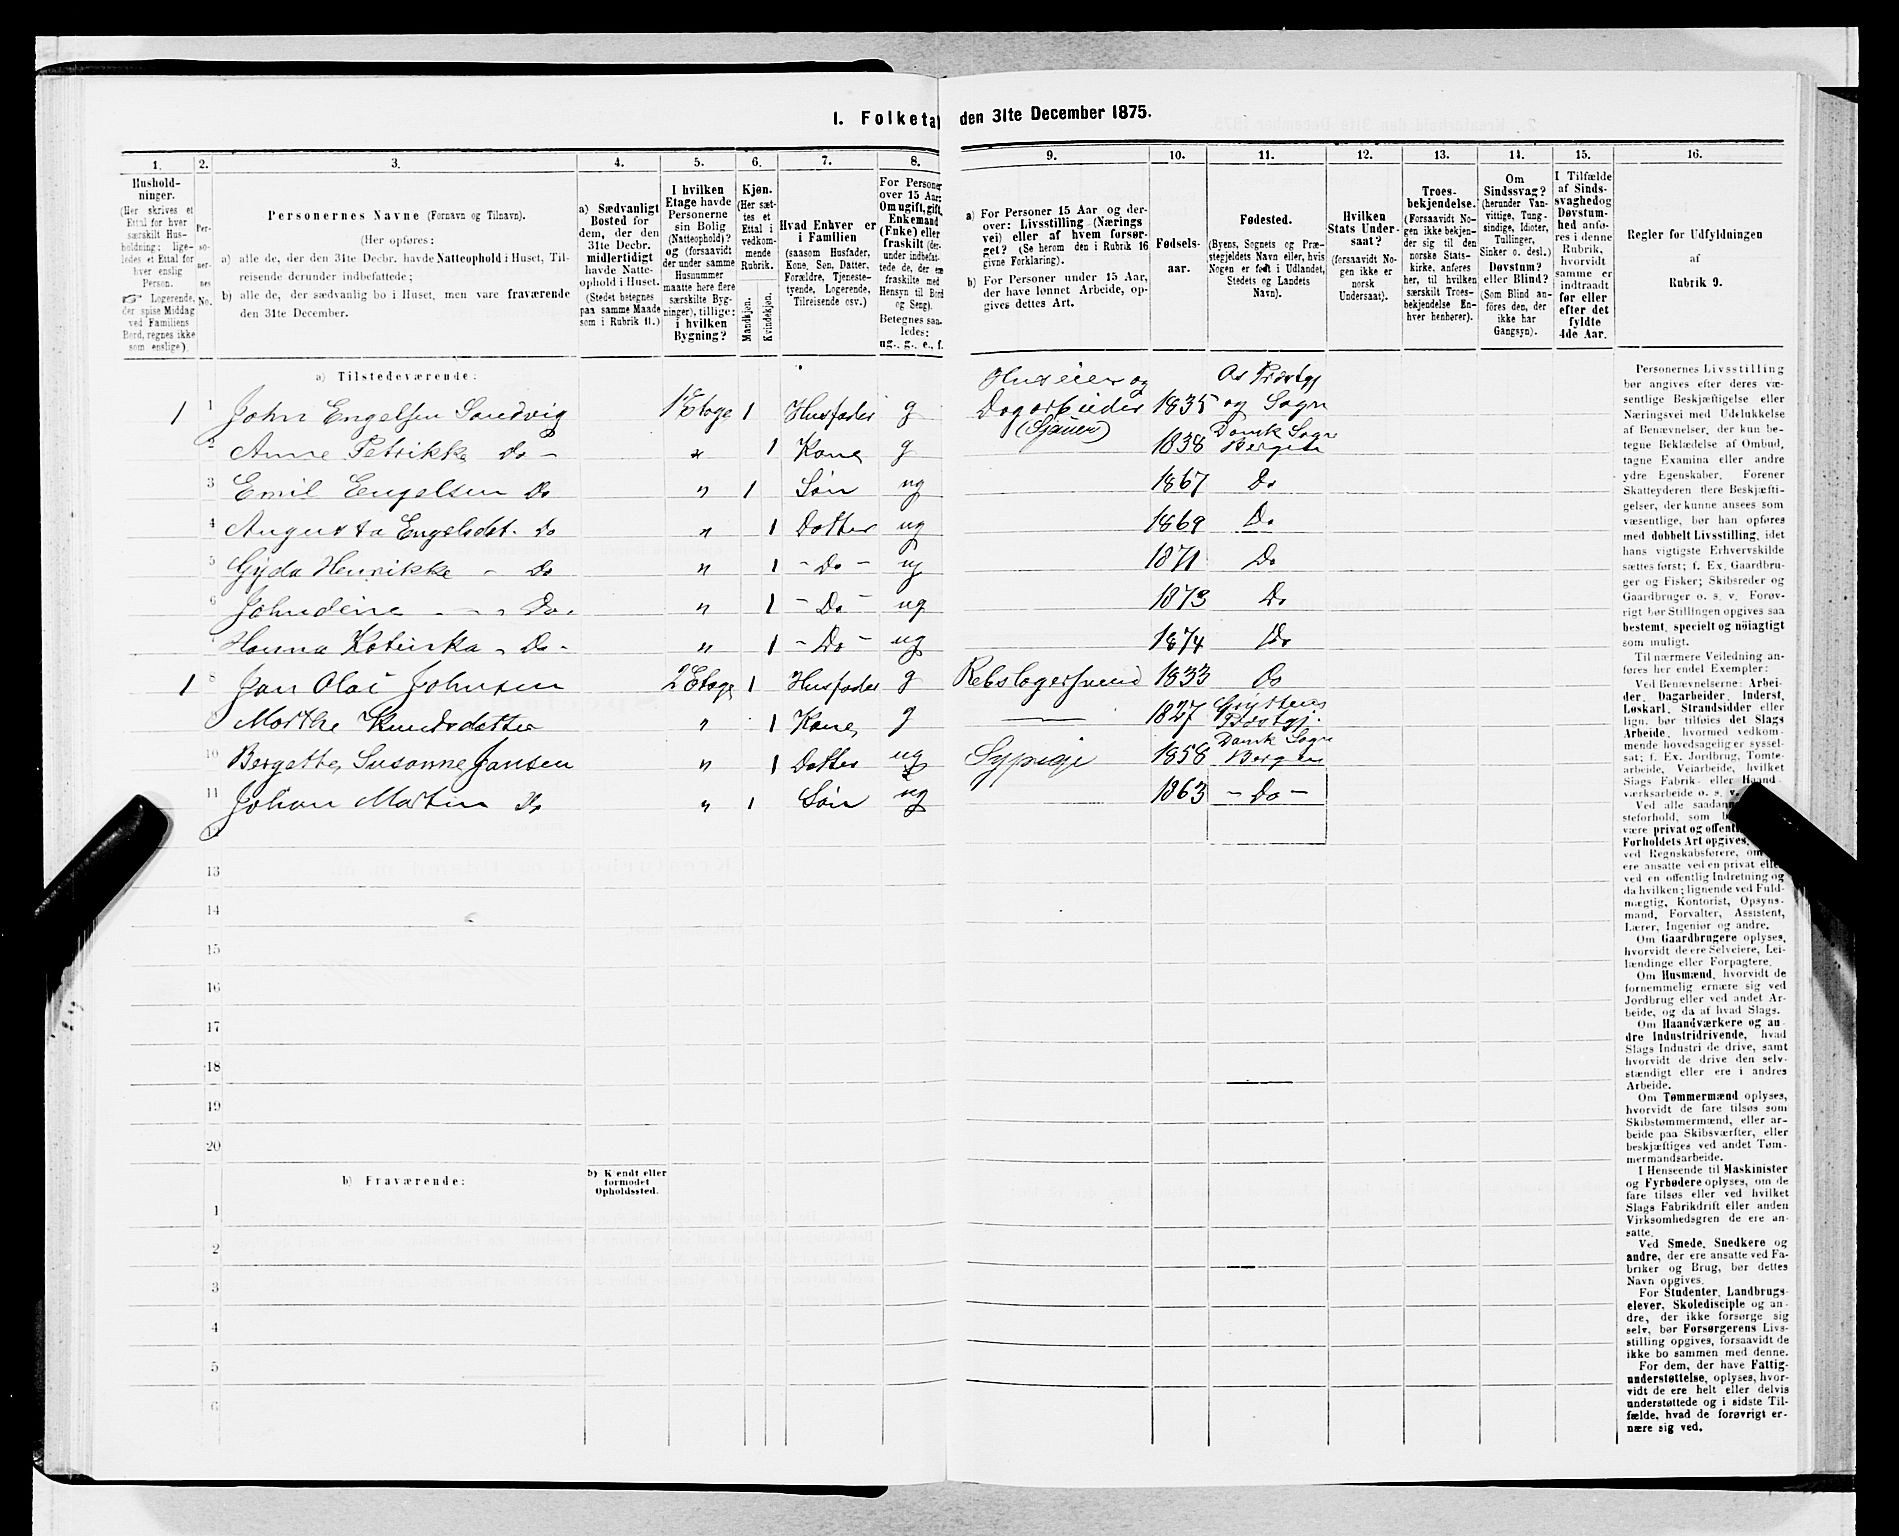 I. Folketal den 31te December 1875.
1. 2. 3. 4. 5. 6. 7. 8. 9. 10. 11. 12. 13. 14. 15. 16.
Hushold-
ninger.
(Her skrives et
Ettal for hver
særskilt Hus-
holdning; lige-
ledes et Ettal for
hver enslig
Person.
☞ Logerende,
der spise Middag
ved Familiens
Bord, regnes ikke
som enslige).
Per-
so-
ner-
nes
No.
Personernes Navne (Fornavn og Tilnavn).
(Her opføres:
a) alle de, der den 31te Decbr. havde Natteophold i Huset, Til-
reisende derunder indbefattede;
b) alle de, der sædvanlig bo i Huset, men vare fraværende
den 31te December.
a) Sædvanligt
Bosted for
dem, der den
31te Decbr.
midlertidigt
havde Natte-
ophold i Huset.
(Stedet betegnes
paa samme Maade
som i Rubrik 11.)
I hvilken
Etage havde
Personerne
sin Bolig
(Natteophold)?
og (forsaavidt
der under samme
Husnummer
maatte høre flere
særskilte Byg-
ninger), tillige:
i hvilken
Bygning?
Kjøn.
(Her sæt-
tes et
Ettal i
vedkom-
mende
Rubrik.
Mandkjøn.
Kvindekjøn.
Hvad Enhver er
i Familien
(saasom Husfader,
Kone, Søn, Datter,
Forældre, Tjeneste-
tyende, Logerende,
Tilreisende osv.)
For Personer
over 15 Aar:
Om ugift, gift,
Enkemand
(Enke) eller
fraskilt (der-
under indbefat-
tede de, der ere
fraskilte med
Hensyn til Bord
og Seng).
Betegnes saa-
ledes:
ug., g., e., f.
a) For Personer 15 Aar og der-
over: Livsstilling (Nærings
vei) eller af hvem forsør-
get? (Se herom den i Rubrik 16
givne Forklaring).
b) For Personer under 15 Aar,
der have lønnet Arbeide, op-
gives dettes Art.
Fødsels-
aar.
Fødested.
(Byens, Sognets og Præ-
stegjeldets Navn eller, hvis
Nogen er født i Udlandet,
Stedets og Landets
Navn).
Hvilken
Stats Under-
saat?
(forsaavidt No-
gen ikke er
norsk
Undersaat).
Troes-
bekjendelse.
(Forsaavidt No-
gen ikke bekjen-
der sig til den
norske Stats-
kirke, anføres
her, til hvilken
særskilt Troes-
bekjendelse En-
hver henhører).
Om
Sindssvag?
(herunder Van-
vittige, Tung-
sindige, Idioter,
Tullinger,
Sinker o. desl.).
Døvstum?
eller Blind?
(Som Blind an-
føres den, der
ikke har
Gangsyn).
I Tilfælde
af Sinds-
svaghed og
Døvstum-
hed anfø-
res i denne
Rubrik,
hvorvidt
samme er
indtraadt
før eller
efter det
fyldte
4de Aar.
Regler for Udfyldningen
af
Rubrik 9.
a) Tilstedeværende:
1 1 John Engelsen Sandvig 1 Etage 1 Husfader g Huseier og Dagarbeider (Sjauer) 1835 Os Præstgj og Sogn
2 Anne Petrikke Do - " 1 Kone g 1838 Domk Sogn Bergen
3 Emil Engelsen Do " 1 Søn ug 1867 Do
4 Augusta Engelsdat. Do " 1 Datter ug 1869 Do
5 Gyda Henrikke - Do " 1 - Do - ug 1871 Do
6 Johndine - - Do. " 1 - Do - ug 1873 Do
7 Hanna Katinka - Do - " 1 - Do - ug 1874 Do
1 8 Jan Olai Johnsen 2 Etage 1 Husfader g Rebslagersvend 1833 Os
9 Marthe Knudsdatter " 1 Kone g 1827 Gryttens Præstgj.
10 Bergette Susanne Jansen " 1 Datter ug Sypige 1858 Domk Sogn Bergen
11 Johan Martin Do " 1 Søn ug 1863 - Do -
12
13
14
15
16
17
18
19
20
b) Fraværende:
b) Kjendt eller
formodet
Opholdssted.
1
2
3
4
5
6
Personernes Livsstilling
bør angives efter deres væ-
sentlige Beskjæftigelse eller
Næringsvei med Udelukkelse
af Benævnelser, der kun be-
tegne Beklædelse af Ombud,
tagne Examina eller andre
ydre Egenskaber. Forener
Skatteyderen flere Beskjæfti-
gelser, der kunne ansees som
væsentlige, bør han opføres
med dobbelt Livsstilling, idet
hans vigtigste Erhvervskilde
sættes først; f. Ex. Gaardbru-
ger og Fisker; Skibsreder og
Gaardbruger o. s. v. Forøv-
rigt bør Stillingen opgives saa
bestemt, specielt og nøiagtigt
som muligt.
Til nærmere Veiledning an-
føres her endel Exempler:
Ved Benævnelserne: Arbei-
der, Dagarbeider, Inderst,
Løskarl, Strandsidder eller
lign. bør tilføies det Slags
Arbeide, hvormed vedkom-
mende hovedsagelig er syssel-
sat; f. Ex. Jordbrug, Tomte-
arbeide, Veiarbeide, hvilket
Slags Fabrik- eller Haand-
værksarbeide o. s. v.
Ved alle saadanne
steforhold, som b
være privat og offentl
Forholdets Art opgives,
ved Regnskabsførere, om
ere ansatte ved en privat eller
ved en offentlig Indretning og
da hvilken; lignende ved Fuld-
mægtig, Kontorist, Opsyns-
mand, Forvalter, Assistent,
Lærer, Ingeniør og andre.
Om Gaardbrugere oplyses,
hvorvidt de ere Selveiere, Lei-
lændinge eller Forpagtere.
Om Husmænd, hvorvidt de
fornemmelig ernære sig ved
Jordbrug eller ved andet Ar-
beide, og da af hvad Slags.
Om Haandværkere og an-
dre Industridrivende, hvad
Slags Industri de drive, samt
hvorvidt de drive den selv-
stændigt eller ere i andres
Arbeide.
Om Tømmermænd oplyses,
hvorvidt de fare tilsøs som
Skibstømmermænd, eller ar-
beide paa Skibsværfter, eller
beskjæftiges ved andet Tøm-
mermandsarbeide.
I Henseende til Maskinister
og Fyrbødere oplyses, om de
fare tilsøs eller ved hvilket
Slags Fabrikdrift eller anden
Virksomhedsgren de ere an-
satte.
Ved Smede, Snedkere og
andre, der ere ansatte ved Fa-
briker og Brug, bør dettes
Navn opgives.
For Studenter, Landbrugs-
elever, Skoledisciple og an-
dre, der ikke forsørge sig
selv, bør Forsørgerens Livs-
stilling opgives, forsaavidt de
ikke bo sammen med denne.
For dem, der have Fattig-
understøttelse, oplyses, hvor-
vidt de ere helt eller delvis
understøttede og i sidste Til-
fælde, hvad de forøvrigt er-
nære sig ved.